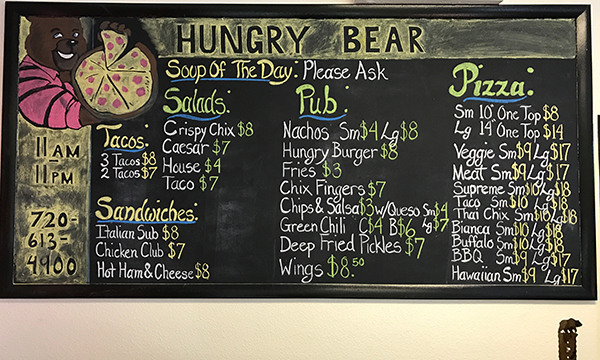 HUNGRY BEAR
Soup Of The Day: Please Ask
11 AM
11 PM
720-
613-
4900
Tacos:
3 Tacos $8
2 Tacos $7
Salads:
Crispy Chix $8
Caesar $7
House $4
Taco $7
Sandwiches:
Italian Sub $8
Chicken Club $7
Hot Ham & Cheese $8
Pub:
Nachos Sm $4 Lg $8
Hungry Burger $8
Fries $3
Chix Fingers $7
Chips & Salsa $3 w/Queso Sm $4 Lg $7
Green Chili C $4 B $6
Deep Fried Pickles $7
Wings $8.50
Pizza:
Sm 10" One Top $8
Lg 14" One Top $14
Veggie Sm $9 Lg $17
Meat Sm $9 Lg $17
Supreme Sm $10 Lg $18
Taco Sm $10 Lg $18
Thai Chix Sm $10 Lg $18
Bianca Sm $10 Lg $18
Buffalo Sm $10 Lg $18
BBQ Sm $9 Lg $17
Hawaiian Sm $9 Lg $17